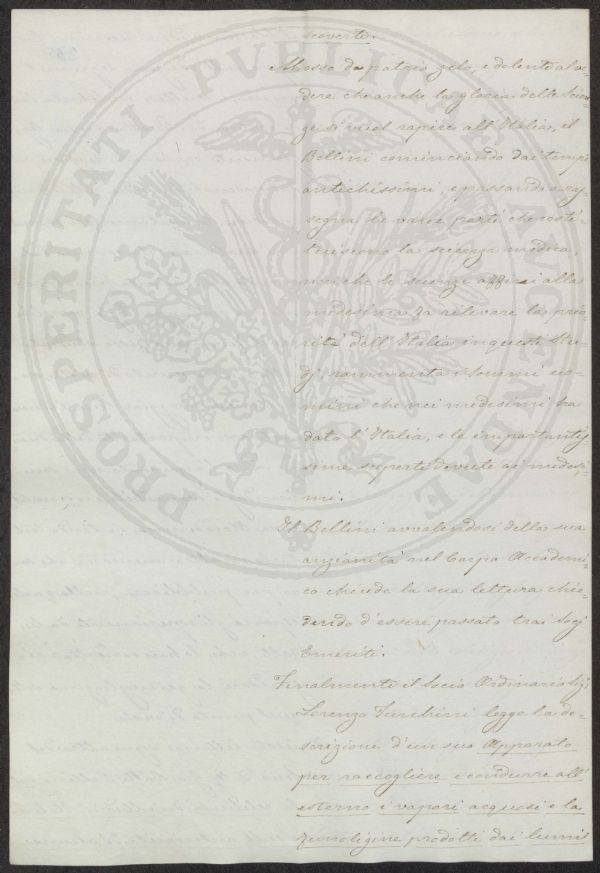 scoverte.
Mosso da patrio zelo, e dolente al ve-
dere che anche la gloria delle Scien-
ze si vuol rapire all'Italia, il
Bellini cominciando dai tempi
antichissimi, e passando a ras-
segna le varie parti che costi-
tuiscono la scienza medica,
non che le scienze affini alla
medesima fa rilevare la prio-
rità dell'Italia in questi Stu-
dj, rammenta i sommi uo-
mini che nei medesimi ha
dato l'Italia, e le importantis-
sime scoperte dovute ai medesi-
mi.
Il Bellini avvalendosi della sua
anzianità nel Corpo Accademi-
co chiude la sua lettura chie-
dendo d'essere passato trai Socj
Emeriti.
Finalmente il Socio Ordinario Sig.
Lorenzo legge la de-
scrizione d'un suo Apparato
per raccogliere e condurre all'
esterno i vapori acquosi e la
fuliggine prodotti dai lumi
PROSPERITATI PVBLICAE AVGENDAE